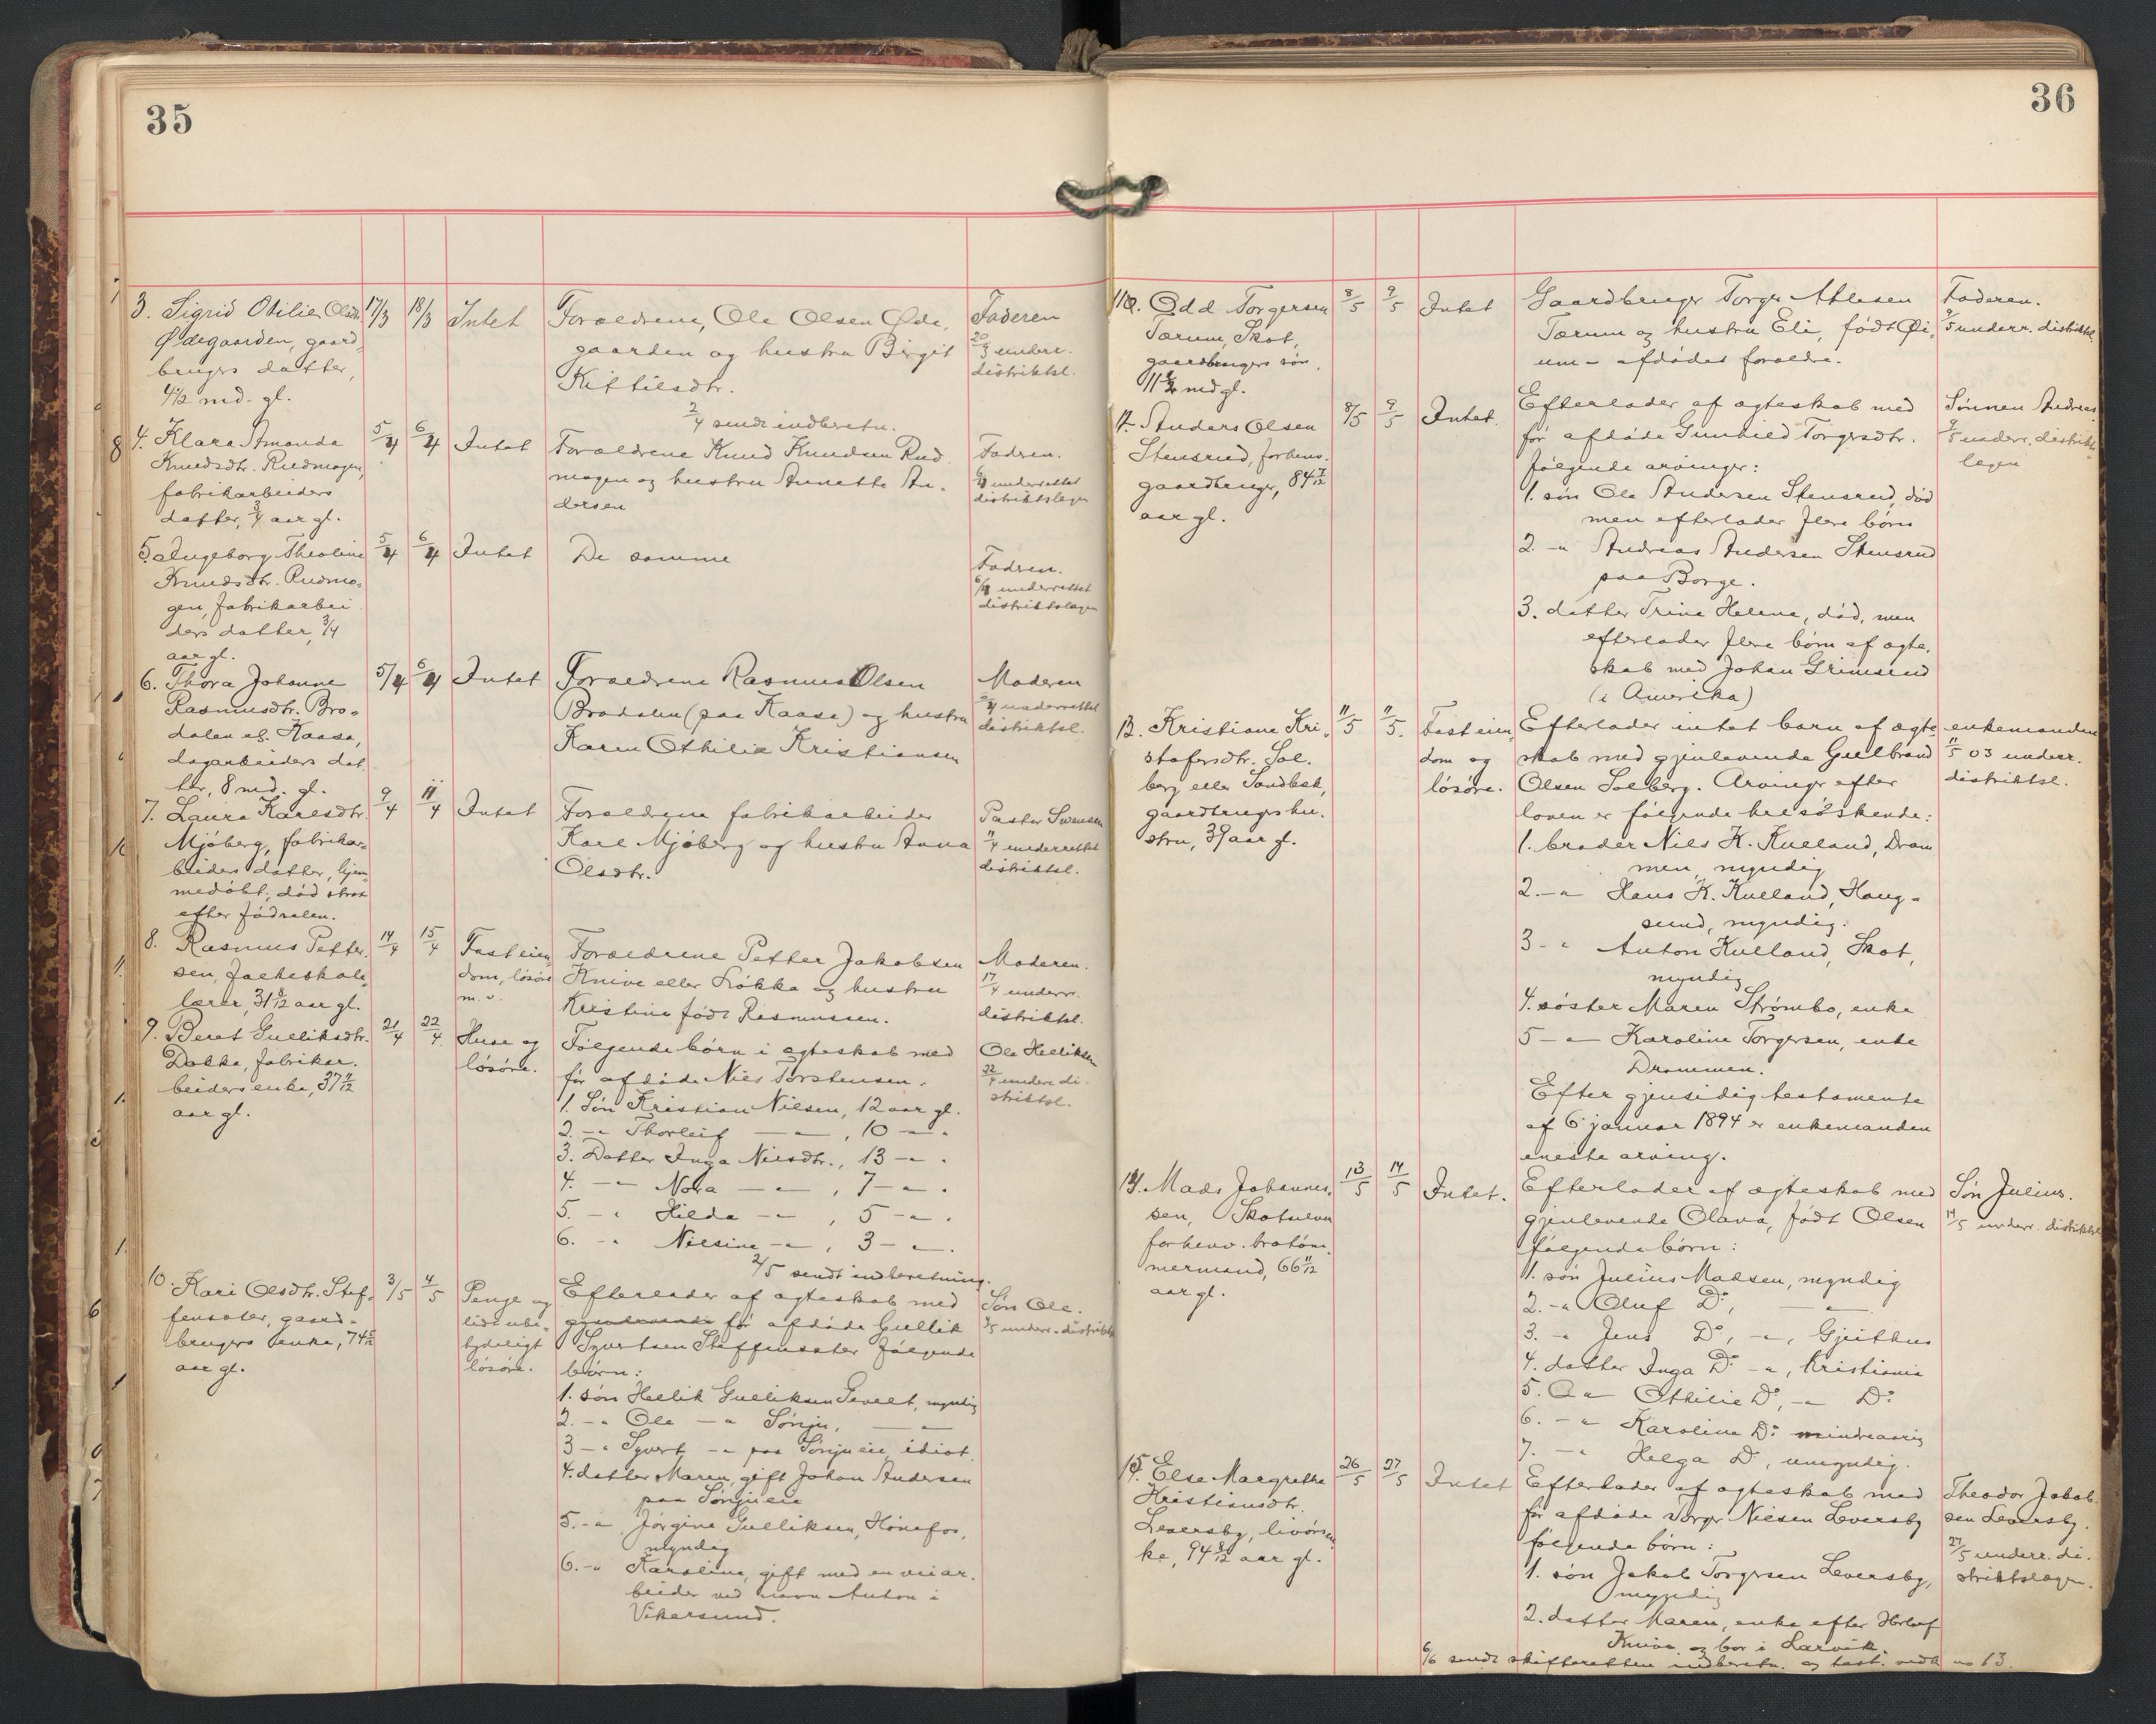 35
3. Sigrid Otilie Olsdtr. 17/3 18/3 Intet Forældrene, Ole Olsen Øde, Faderen
Ødegaarden, gaard, gaarden og hustru Birgit 20/3 underr.
brugers datter, Kittilsdtr. distriktsl.
4 1/2 md. gl.
2/4 sendt indberetn.
4. Klara Amanda 5/4 6/4 Intet Forældrene Knud Knudsen Rud Fadren.
Knudsdtr. Rudmogen, mogen og hustru Annette An- 6/4 underrettet
fabrikarbeiders dersen distriktslegen
datter, 3/4 aar gl.
5. Ingeborg Theoline 5/4 6/4 Intet De samme Fadren.
Knudsdtr. Rudmo- 6/4 underrettet
gen, fabrikarbei distriktslegen
ders datter, 3/4
aar gl.
6. Thora Johanne 5/4 6/4 Intet Forældrene Rasmus Olsen Moderen
Rasmusdtr. Bro- Brodalen (paa Kaasa) og hustru underrettet
dalen el. Kaasa, Karen Othilie Kristiansen distriktsl.
dagarbeiders dat
ter, 8 md. gl.
7. Laura Karlsdtr. 9/4 11/4 Intet Forældrene fabrikarbeider Pastor Svensen
Mjøberg, fabrikar- Karl Mjøberg og hustru Anna 11/4 underrettet
beiders datter, hjem- Olsdtr. distriktsl.
medøbt, død strax
efter fødselen.
8. Rasmus Petter- 14/4 15/4 Fast eien- Forældrene Petter Jakobsen Moderen.
sen, folkeskole- dom, løsøre Knive eller Løkka og hustru 17/4 underr.
lærer, 31 8/12 aar gl. m. v. Kristine født Rasmussen. distriktsl.
9. Beret Gulliksdtr. 21/4 22/4 Huse og Følgende børn i ægteskab med Ole Helliksen
Dokka, fabrikar- løsøre. før afdøde Nils Torstensen. 22/4 underr. di-
beiders enke, 37 11/12 1. Søn Kristian Nilsen, 12 aar gl. striktsl.
aar gl. 2. -"- Thorleif -"-, 10 -"-
3. Datter Inga Nilsdtr., 13 -"-
4. -"- Nora -"-, 7 -"-
5. -"- Hilda -"-, 5 -"-
6. -"- Nilsine -"-, 3 -"-
2/5 sendt indberetning.
10. Kari Olsdtr. Stef- 3/5 4/5 Penge og Efterlader af ægteskab med Søn Ole.
fensæter, gaard- lidt ube- gjenlevende før afdøde Gullik 4/5 underr. distriktsl
brugers enke, 74 5/12 tydeligt Syvertsen Steffensæter følgende
aar gl. løsøre. børn:
1. søn Hellik Gulliksen Gevelt, myndig
2. -"- Ole -"- Sønju, -"-
3 -"- Syvert -"- paa Sønjueie, idiot.
4. datter Maren, gift Johan Andersen
paa Sønjueie
5. -"- Jørgine Gulliksen, Hønefos,
myndig
6. -"- Karoline, gift med en veiar-
beider ved navn Anton i
Vikersund.
36
11. Odd Torgersen 8/5 9/5 Intet Gaardbruger Torger Atlesen Faderen.
Tærum, Skot, Tærum og hustru Eli, født Øi- 9/5 underr. distriktsl.
gaardbrugers søn, um - afdødes forældre.
11 1/2 md gl.
12. Anders Olsen 8/5 9/5 Intet. Efterlader af ægteskab med Sønnen Andreas
Stensrud, forhenv. før afdøde Gunhild Torgersdtr. 9/5 underr. distrikts-
gaardbruger, 84 7/12 følgende arvinger: legen
aar gl. 1. søn Ole Andersen Stensrud, død
men efterlader flere børn
2. -"- Andreas Andersen Stensrud
paa Borge.
3. datter Trine Helene, død, men
efterlader flere børn af ægte-
skab med Johan Grimsrud
(i Amerika)
13. Kristiane Kri- 11/5 11/5. Fast eien- Efterlader intet barn af ægte enkemanden
stofersdtr. Sol- dom og skab med gjenlevende Gulbrand 11/5 03 underr.
berg eller Sandbek, løsøre. Olsen Solberg. Arvinger efter distriktsl.
gaardbrugers hu- loven er følgende helsøskende:
stru, 39 aar gl. 1. broder Nils K. Kulland, Dram
men, myndig
2. -"- Hans K. Kulland, Houg-
sund, myndig.
3 -"- Anton Kulland, Skot,
myndig
4. søster Maren Strømbo, enke
5 -"- Karoline Torgersen, enke
Drammen.
Efter gjensidig testamente
af 6 januar 1894 er enkemanden
eneste arving.
14. Mads Johannes- 13/5 14/5 Intet. Efterlader af ægteskab med Søn Julius.
sen, Skotselven gjenlevende Olava, født Olsen 14/5 underr. distriktsl
forhenv. brotøm- følgende børn:
mermand, 66 11/12 1. søn Julius Madsen, myndig
aar gl. 2. -"- Oluf Do, -"-
3. -"- Jens Do, -"-, Gjeithus
4. datter Inga Do -"-, Kristiania
5. -"- Othilie Do, -"- Do
6. -"- Karoline Do mindreaarig
7. -"- Helga Do, umyndig.
15. Else Margrethe 26/5 27/5 Intet Efterlader af ægteskab med Theodor Jakob-
Kristiansdtr. før afdøde Torger Nilsen Leversby sen Leversby.
Leversby, livøren- følgende børn: 27/5 underr. di-
ke, 94 8/12 aar gl. 1. søn Jakob Torgersen Leversby, striktslegen.
myndig
2. datter Maren, enke efter Herlof
Knive og bor i Larvik.
6/6 sendt skifteretten indberetn. og test. vedk no 13